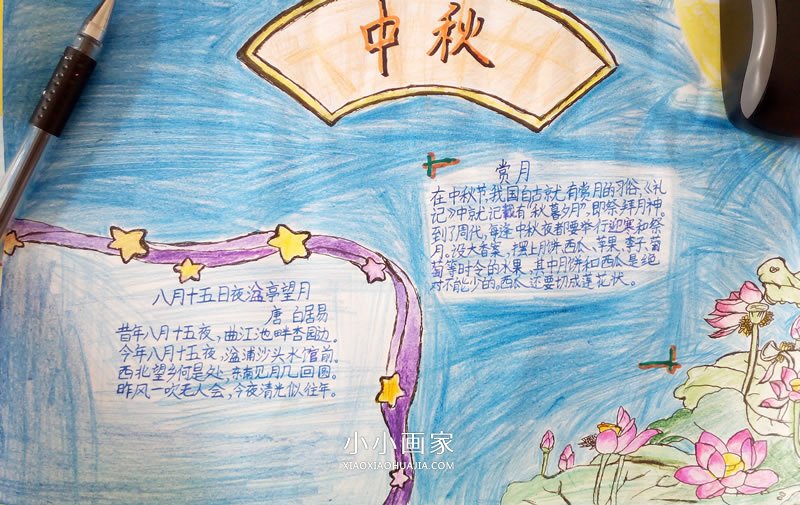 中秋
赏月
在中秋节,我国自古就有赏月的习俗,《礼
记》中就记载有"秋暮夕月",即祭拜月神。
到了周代,每逢中秋夜都要举行迎寒和祭
月。设大香案,摆上月饼、西瓜、苹果、李子、葡
萄等时令的水果,其中月饼和西瓜是绝
对不能少的。西瓜还要切成莲花状。
八月十五日夜湓亭望月
唐 白居易
昔年八月十五夜,曲江池畔杏园边。
今年八月十五夜,湓浦沙头水馆前。
西北望乡何是处,东南见月几回圆。
昨风一吹无人会,今夜清光似往年。
小小画家
XIAOXIAOHUAJIA.COM